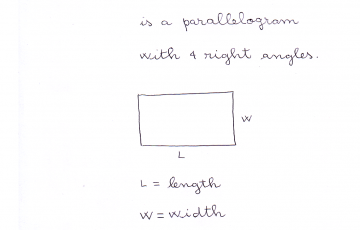 is a parallelogram
with 4 right angles.
W
L
L = length
W = width